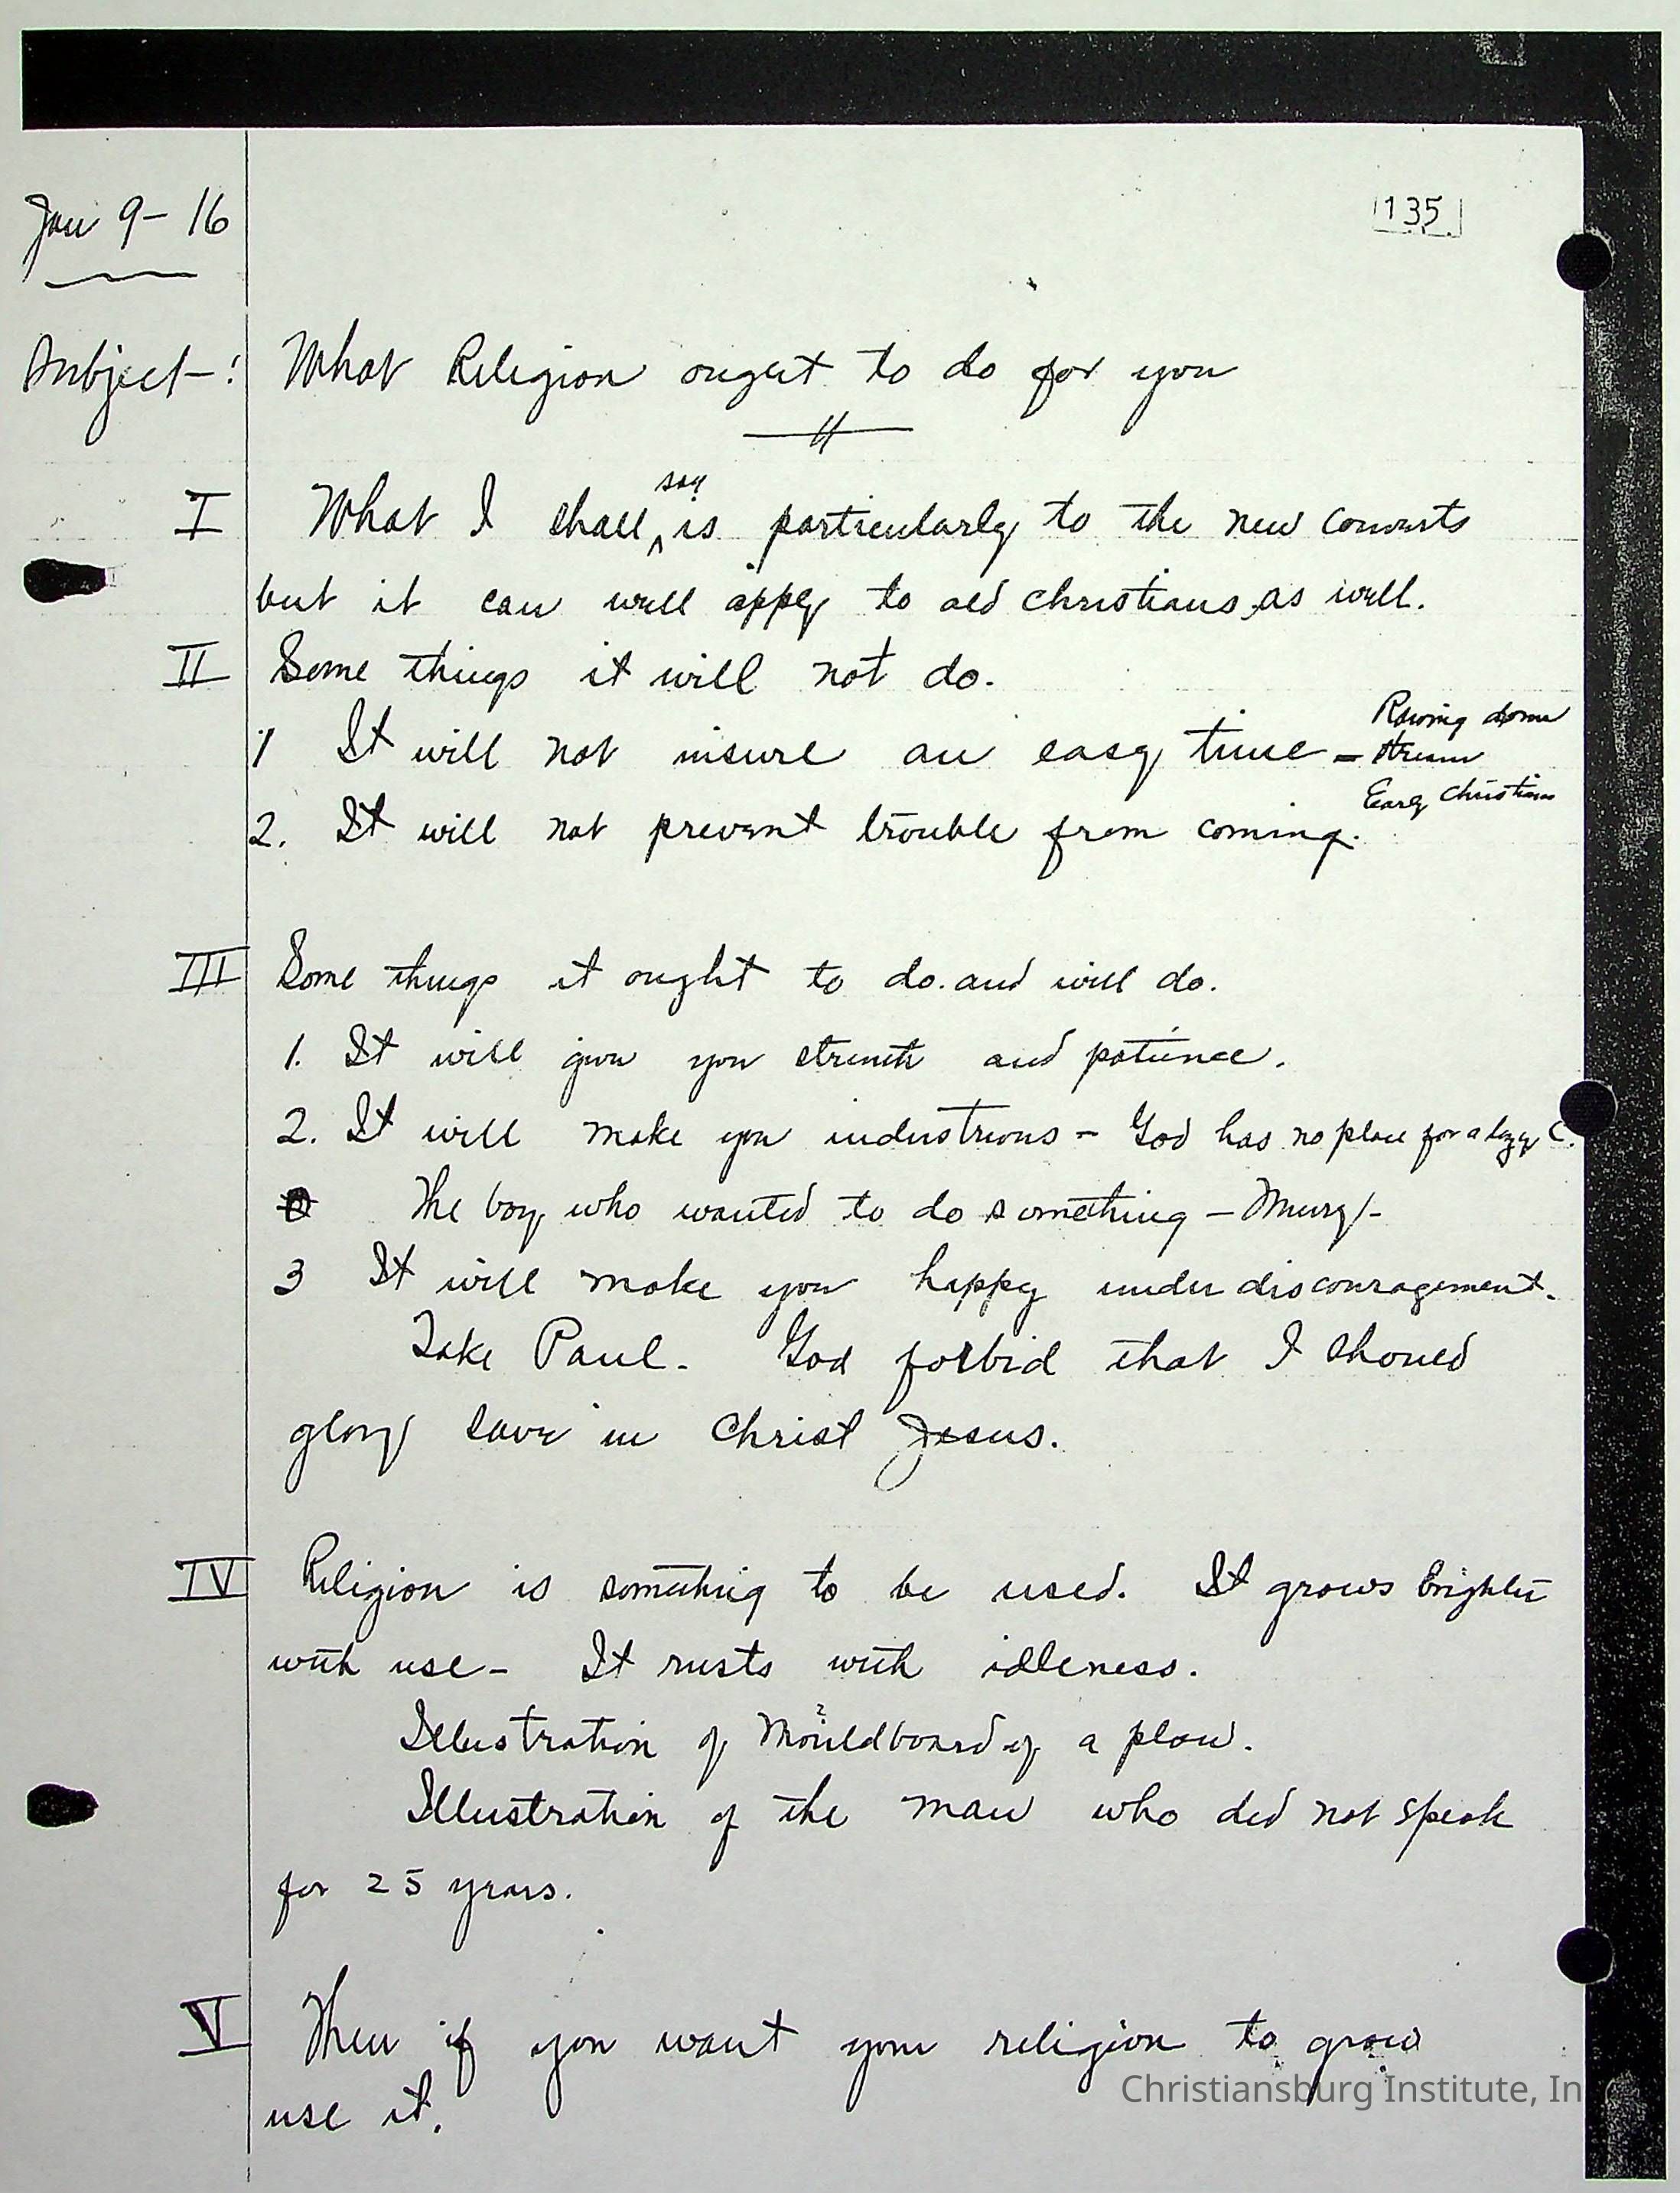 Jan 9-16
135
Subject-: What Religion ought to do for you
I What I shall say is particularly to the new converts
but it can well apply to old christians, as well.
II Some things it will not do.
1 It will not insure an easy time - Rowing down
stream
Early Christians
2. It will not prevent trouble from coming.
III Some things it ought to do. and will do.
1. It will give you strenth and patience.
2. It will make you industrious - God has no place for a lazy C.
The boy who wanted to do something -
3 It will make you happy under discouragement.
Take Paul. God forbid that I should
glory save in Christ Jesus.
IV Religion is something to be used. It grows brighter
with use - It rusts with idleness.
Illustration of Mouldboard of a plow.
Illustration of the man who did not speak
for 25 years.
V Then if you want your religion to grow
use it.
Christiansburg Institute, In